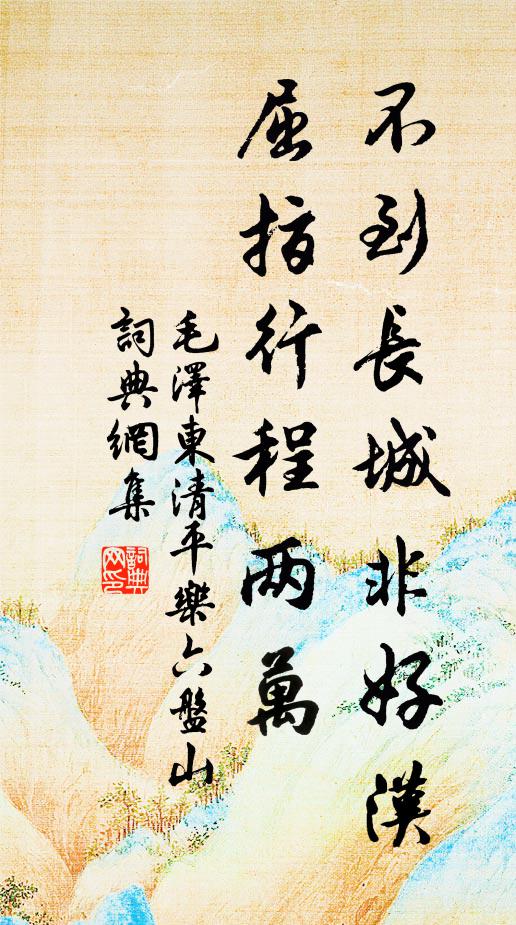 不到長城非好漢
屈指行程两萬
毛澤東清平樂六盤山
詞典網集
詞典网印